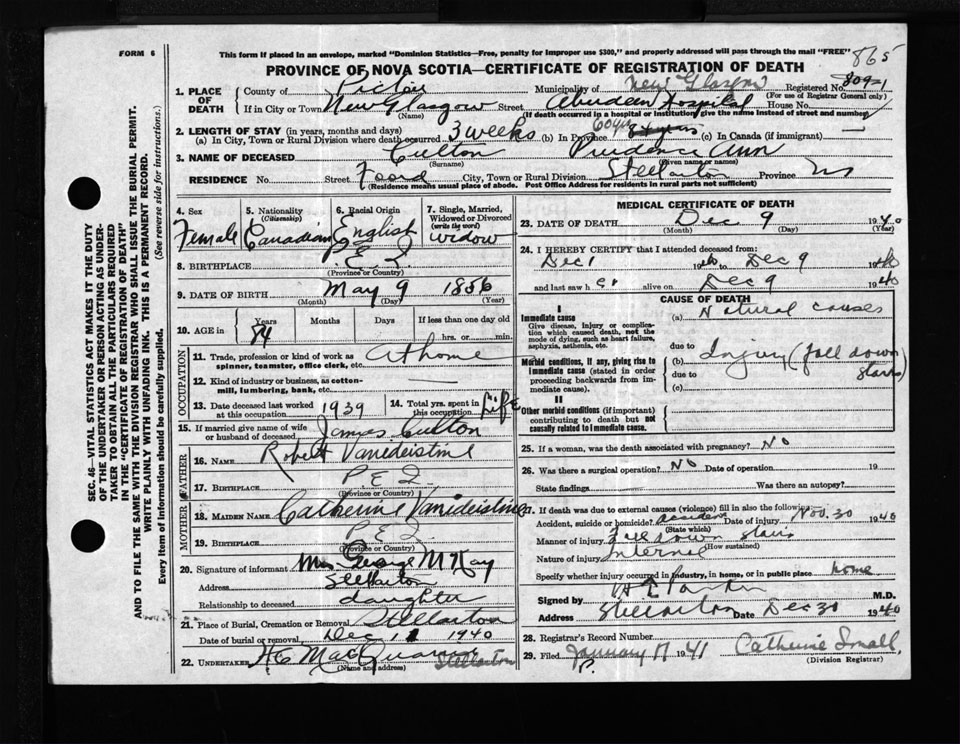 FORM 6
This form if placed in an envelope, marked "Dominion Statistics—Free, penalty for improper use $300," and properly addressed will pass through the mail "FREE"
865
PROVINCE OF NOVA SCOTIA—CERTIFICATE OF REGISTRATION OF DEATH
1. PLACE OF DEATH
County of Pictou Municipality of New Glasgow Registered No. 809-1
(For use of Registrar General only)
If in City or Town New Glasgow Street Aberdeen Hospital House No.
(Name) (If death occurred in a hospital or institution, give the name instead of street and number)
2. LENGTH OF STAY (in years, months and days)
(a) In City, Town or Rural Division where death occurred 3 weeks (b) In Province 60 yrs 84 years (c) In Canada (if immigrant)
3. NAME OF DECEASED Culton Prudence Ann
(Surname) (Given name or names)
RESIDENCE No. Street Foord City, Town or Rural Division Stellarton Province NS
(Residence means usual place of abode. Post Office Address for residents in rural parts not sufficient)
4. Sex Female
5. Nationality (Citizenship) Canadian
6. Racial Origin English
7. Single, Married, Widowed or Divorced (write the word) widow
8. BIRTHPLACE P.E.I.
(Province or Country)
9. DATE OF BIRTH May 9 1856
(Month) (Day) (Year)
10. AGE in Years 84 Months Days If less than one day old hrs. or min.
OCCUPATION
11. Trade, profession or kind of work as spinner, teamster, office clerk, etc. At home
12. Kind of industry or business, as cotton-mill, lumbering, bank, etc. —
13. Date deceased last worked at this occupation 1939
14. Total yrs. spent in this occupation Life
15. If married give name of wife or husband of deceased James Culton
FATHER
16. NAME Robert Vanideistine
17. BIRTHPLACE P E I
(Province or Country)
MOTHER
18. MAIDEN NAME Catherine Vanideistine
19. BIRTHPLACE P E I
(Province or Country)
20. Signature of informant Mrs George McKay
Address Stellarton
Relationship to deceased daughter
21. Place of Burial, Cremation or Removal Stellarton
Date of burial or removal Dec 11 1940
22. UNDERTAKER H C MacQuarrie Stellarton
(Name and address)
MEDICAL CERTIFICATE OF DEATH
23. DATE OF DEATH Dec 9 1940
(Month) (Day) (Year)
24. I HEREBY CERTIFY that I attended deceased from:
Dec 1 1940 to Dec 9 1940
and last saw her alive on Dec 9 1940
CAUSE OF DEATH
I
Immediate cause (a) Natural causes
Give disease, injury or complication which caused death, not the mode of dying, such as heart failure, asphyxia, asthenia, etc.
due to
Morbid conditions, if any, giving rise to immediate cause (stated in order proceeding backwards from immediate cause).
(b) Injury (fall down stairs)
due to
(c)
II
Other morbid conditions (if important) contributing to death but not causally related to immediate cause.
25. If a woman, was the death associated with pregnancy? No
26. Was there a surgical operation? No Date of operation 19
State findings Was there an autopsy?
27. If death was due to external causes (violence) fill in also the following:
Accident, suicide or homicide? Accident Date of injury Nov. 30 1940
(State which)
Manner of injury Fell down stairs
(How sustained)
Nature of injury Internal
Specify whether injury occurred in industry, in home, or in public place home
Signed by M.D.
Address Stellarton Date Dec 30 1940
28. Registrar's Record Number
29. Filed January 17 1941 Catherine Small
(Division Registrar)
SEC. 46—VITAL STATISTICS ACT MAKES IT THE DUTY
OF THE UNDERTAKER OR PERSON ACTING AS UNDER-
TAKER TO OBTAIN ALL THE PARTICULARS REQUIRED
IN THE "CERTIFICATE OF REGISTRATION OF DEATH"
AND TO FILE THE SAME WITH THE DIVISION REGISTRAR WHO SHALL ISSUE THE BURIAL PERMIT.
WRITE PLAINLY WITH UNFADING INK. THIS IS A PERMANENT RECORD.
Every item of information should be carefully supplied. (See reverse side for instructions).